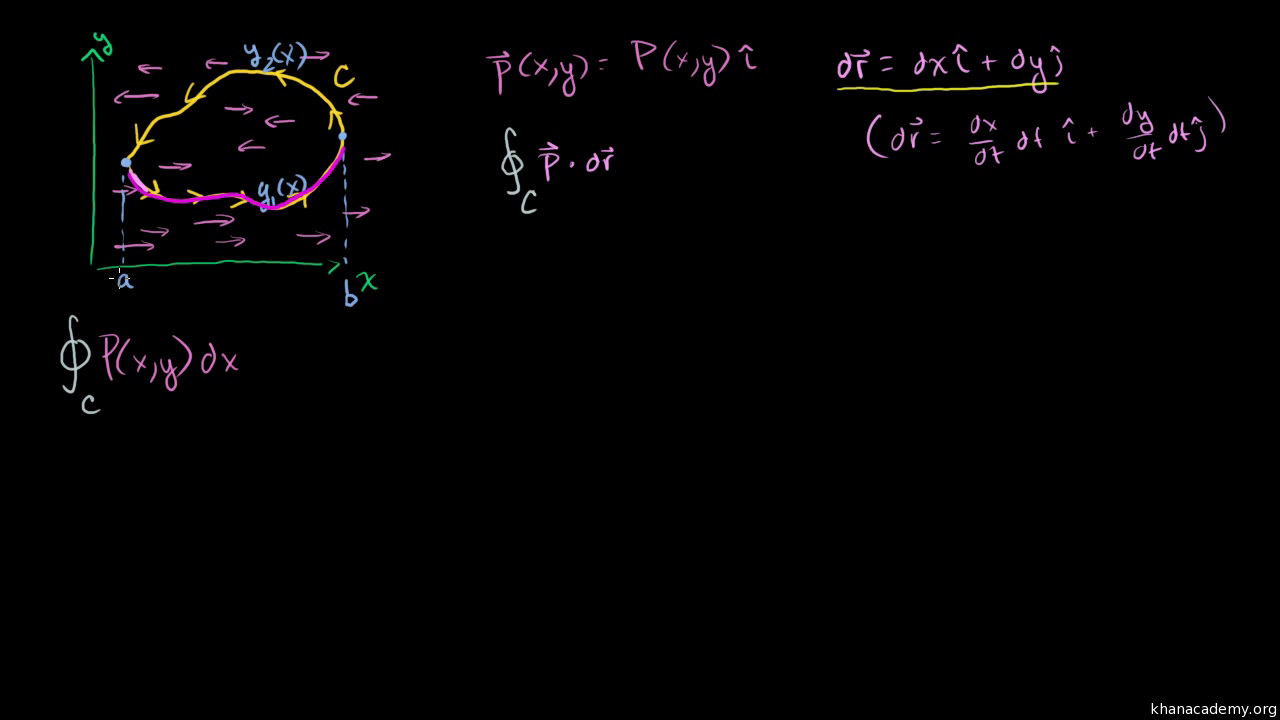 y
y₂(x)
C
y₁(x)
a
b x
∮_C P(x,y) dx
p⃗(x,y) = P(x,y) î
∮_C p⃗ · dr⃗
dr⃗ = dx î + dy ĵ
(dr⃗ = dx/dt dt î + dy/dt dt ĵ)
khanacademy.org